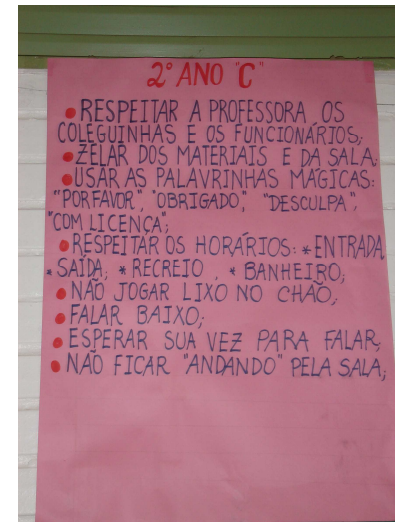 2º ANO "C"
• RESPEITAR A PROFESSORA OS
COLEGUINHAS E OS FUNCIONÁRIOS;
• ZELAR DOS MATERIAIS E DA SALA;
• USAR AS PALAVRINHAS MÁGICAS:
"POR FAVOR", "OBRIGADO", "DESCULPA",
"COM LICENÇA";
• RESPEITAR OS HORÁRIOS: *ENTRADA
*SAÍDA; * RECREIO, * BANHEIRO;
• NÃO JOGAR LIXO NO CHÃO;
• FALAR BAIXO;
• ESPERAR SUA VEZ PARA FALAR;
• NÃO FICAR "ANDANDO" PELA SALA;